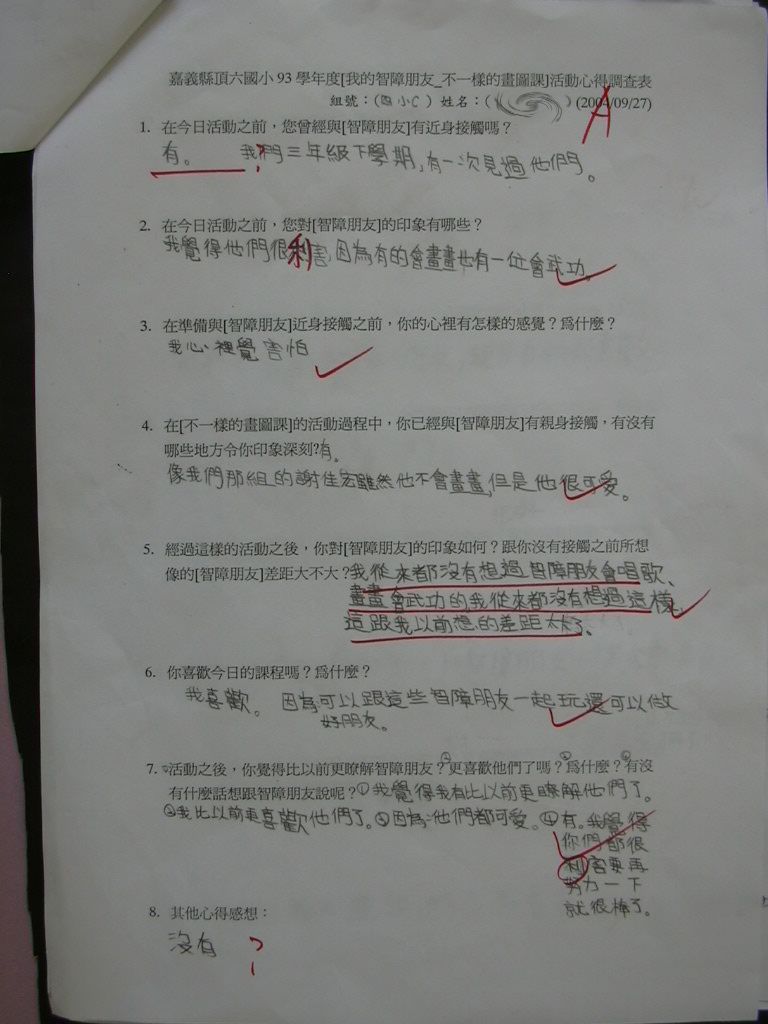 嘉義縣頂六國小 93 學年度[我的智障朋友_不一樣的畫圖課]活動心得調查表
組號：(四 小C ) 姓名：( ) (2004/09/27)
A
1. 在今日活動之前，您曾經與[智障朋友]有近身接觸嗎？
有。 我們三年級下學期,有一次見過他們。
?
2. 在今日活動之前，您對[智障朋友]的印象有哪些？
我覺得他們很利害,因為有的會畫畫也有一位會武功。
3. 在準備與[智障朋友]近身接觸之前，你的心裡有怎樣的感覺？爲什麼？
我心裡覺害怕
4. 在[不一樣的畫圖課]的活動過程中，你已經與[智障朋友]有親身接觸，有沒有
哪些地方令你印象深刻?有。
像我們那組的謝佳宏雖然他不會畫畫,但是他很可愛。
5. 經過這樣的活動之後，你對[智障朋友]的印象如何？跟你沒有接觸之前所想
像的[智障朋友]差距大不大？我從來都沒有想過智障朋友會唱歌、
畫畫會武功的我從來都沒有想過這樣,
這跟我以前想的差距太大了。
6. 你喜歡今日的課程嗎？爲什麼？
我喜歡。 因為可以跟這些智障朋友一起玩還可以做
好朋友。
7. ①活動之後，你覺得比以前更瞭解智障朋友？②更喜歡他們了嗎？③爲什麼？④有沒
有什麼話想跟智障朋友說呢？①我覺得我有比以前更瞭解他們了。
②我比以前更喜歡他們了。③因為他們都可愛。④有。我覺得
你們都很
利害要再
努力一下
就很棒了。
8. 其他心得感想：
沒有 ?